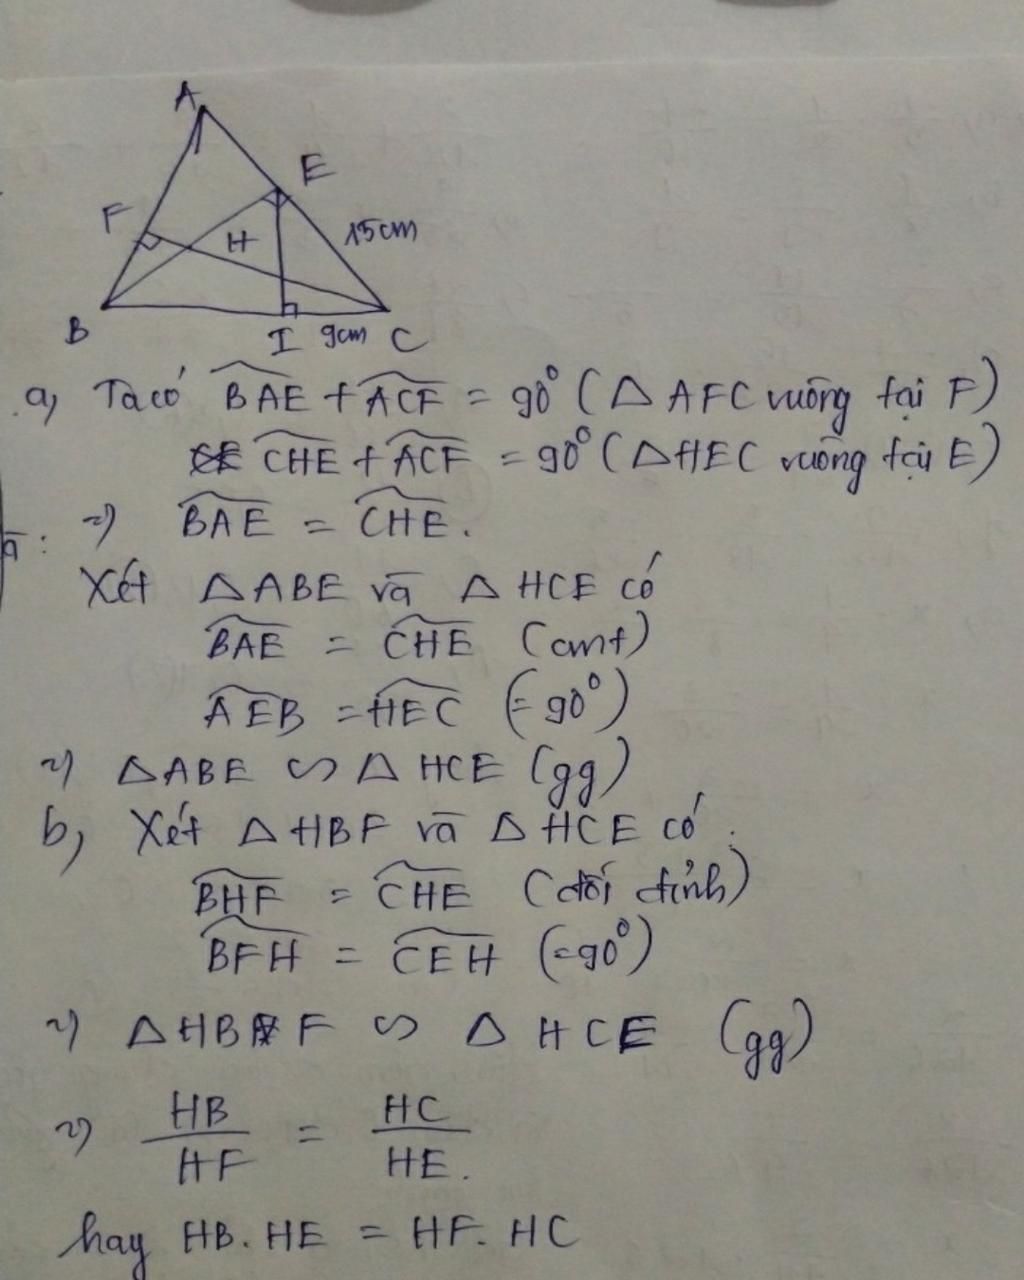 A
E
F
H
15cm
B
I
9cm
C
a, Ta có BAE + ACF = 90° (△ AFC vuông tại F)
CHE + ACF = 90° (△HEC vuông tại E)
=) BAE = CHE.
Xét △ABE và △ HCE có
BAE = CHE (cmt)
AEB = HEC (=90°)
=) △ABE ∽ △ HCE (gg)
b, Xét △HBF và △HCE có.
BHF = CHE (đối đỉnh)
BFH = CEH (=90°)
=) △HBF ∽ △ HCE (gg)
=) HB/HF = HC/HE.
hay HB.HE = HF.HC